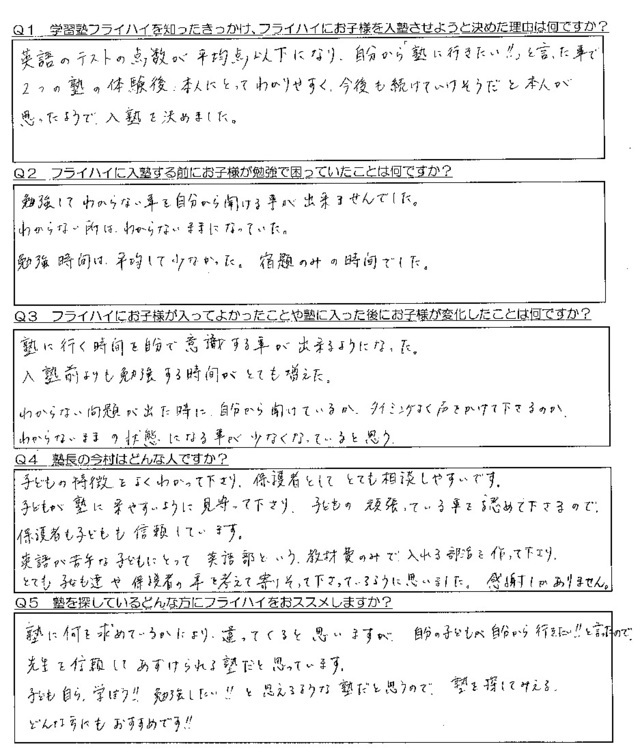 Q1 学習塾フライハイを知ったきっかけ、フライハイにお子様を入塾させようと決めた理由は何ですか？
英語のテストの点数が平均点以下になり、自分から「塾に行きたい!!」と言った事で
2つの塾の体験後、本人にとってわかりやすく、今後も続けていけそうだと本人が
思ったようで、入塾を決めました。
Q2 フライハイに入塾する前にお子様が勉強で困っていたことは何ですか？
勉強してわからない事を自分から聞ける事が出来ませんでした。
わからない所は、わからないままになっていた。
勉強時間は、平均して少なかった。宿題のみの時間でした。
Q3 フライハイにお子様が入ってよかったことや塾に入った後にお子様が変化したことは何ですか？
塾に行く時間を自分で意識する事が出来るようになった。
入塾前よりも勉強する時間がとても増えた。
わからない問題が出た時に、自分から聞けているか、タイミングよく声をかけて下さるのか、
わからないままの状態になる事が少なくなっていると思う。
Q4 塾長の今村はどんな人ですか？
子どもの特徴をよくわかって下さり、保護者としてとても相談しやすいです。
子どもが塾に来やすいように見守って下さり、子どもの頑張っている事を認めて下さるので、
保護者も子どもも信頼しています。
英語が苦手な子どもにとって英語部という、教材費のみで入れる部活を作って下さり、
とても子ども達や保護者の事を考えて寄りそって下さっているように思いました。感謝しかありません。
Q5 塾を探しているどんな方にフライハイをおススメしますか？
塾に何を求めているかにより、違ってくると思いますが、自分の子どもが自分から行きたい!!と言ったので、
先生を信頼してあずけられる塾だと思っています。
子ども自ら、学ぼう!! 勉強したい!!と思えるような塾だと思うので、塾を探してみえる、
どんな方にもおすすめです!!